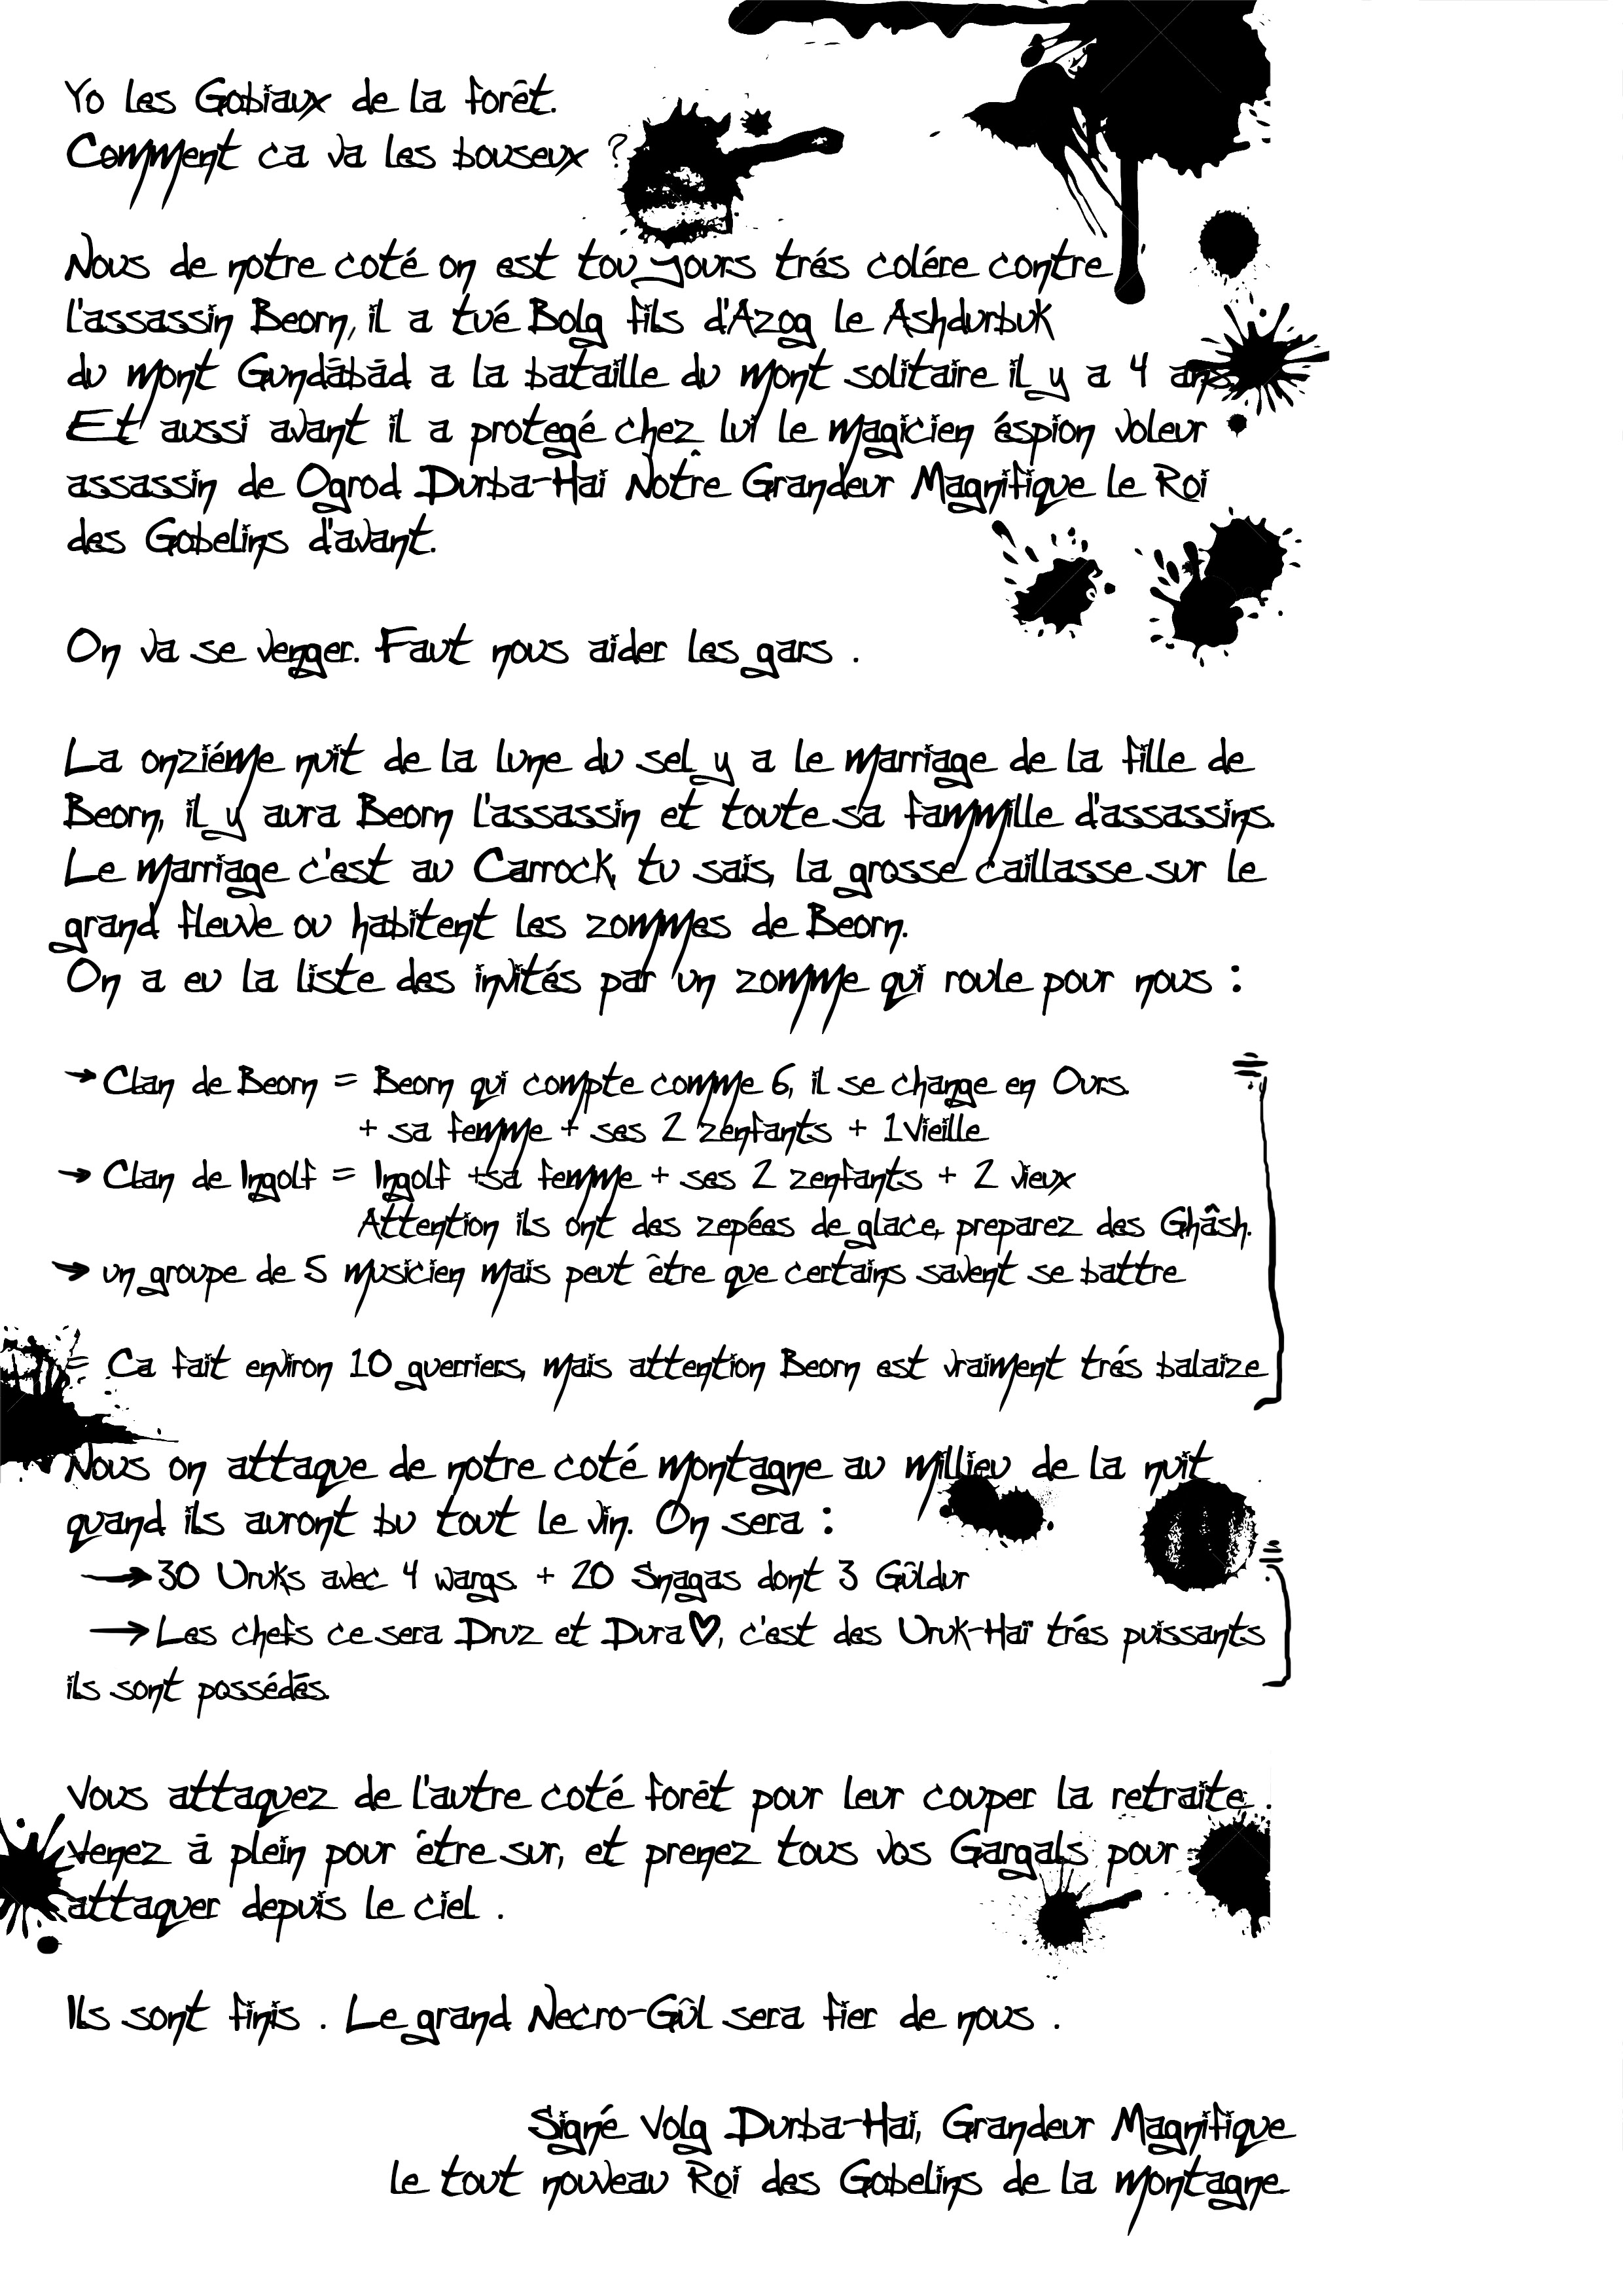 Yo les Gobiaux de la forêt.
Comment ca va les bouseux ?
Nous de notre coté on est touyours trés colére contre
l'assassin Beorn, il a tué Bolg fils d'Azog le Ashdurbuk
du mont Gundābād a la bataille du mont solitaire il y a 4 ans.
Et aussi avant il a protegé chez lui le magicien éspion voleur
assassin de Ogrod Durba-Hai Nôtre Grandeur Magnifique le Roi
des Gobelins d'avant.
On va se venger. Faut nous aider les gars .
La onziéme nuit de la lune du sel y a le marriage de la fille de
Beorn, il y aura Beorn l'assassin et toute sa fammille d'assassins.
Le marriage c'est au Carrock, tu sais, la grosse caillasse sur le
grand fleuve ou habitent les zommes de Beorn.
On a eu la liste des invités par un zomme qui roule pour nous :
→ Clan de Beorn = Beorn qui compte comme 6, il se change en Ours.
+ sa femme + ses 2 zenfants + 1 Vieille
→ Clan de Ingolf = Ingolf +sa femme + ses 2 zenfants + 2 vieux
Attention ils ont des zepées de glace, preparez des Ghâsh.
→ un groupe de 5 musicien mais peut être que certains savent se battre
= Ca fait environ 10 guerriers, mais attention Beorn est vraiment trés balaize
Nous on attaque de notre coté montagne au millieu de la nuit
quand ils auront bu tout le vin. On sera :
→ 30 Uruks avec 4 wargs + 20 Snagas dont 3 Gûldur
→ Les chefs ce sera Druz et Dura♥, c'est des Uruk-Haï trés puissants
ils sont possédés.
Vous attaquez de l'autre coté forêt pour leur couper la retraite .
Venez ā plein pour être sur, et prenez tous vos Gargals pour
attaquer depuis le ciel .
Ils sont finis . Le grand Necro-Gûl sera fier de nous .
Signé Volg Durba-Hai, Grandeur Magnifique
le tout nouveau Roi des Gobelins de la montagne.